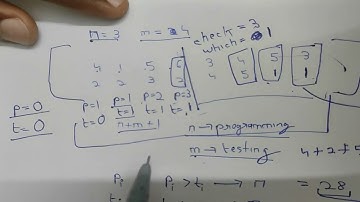 n=3 m=4
check=3
which=1
4 1 5 5 3 4 5 3
2 2 3 3 4 5 1
p=0 p=1 p=1 p=2 p=3
t=0 t=0 t=1 t=1 t=1
n+m+1 n→programming
m→testing 4+2+5
Pi Pi>ti → n =28